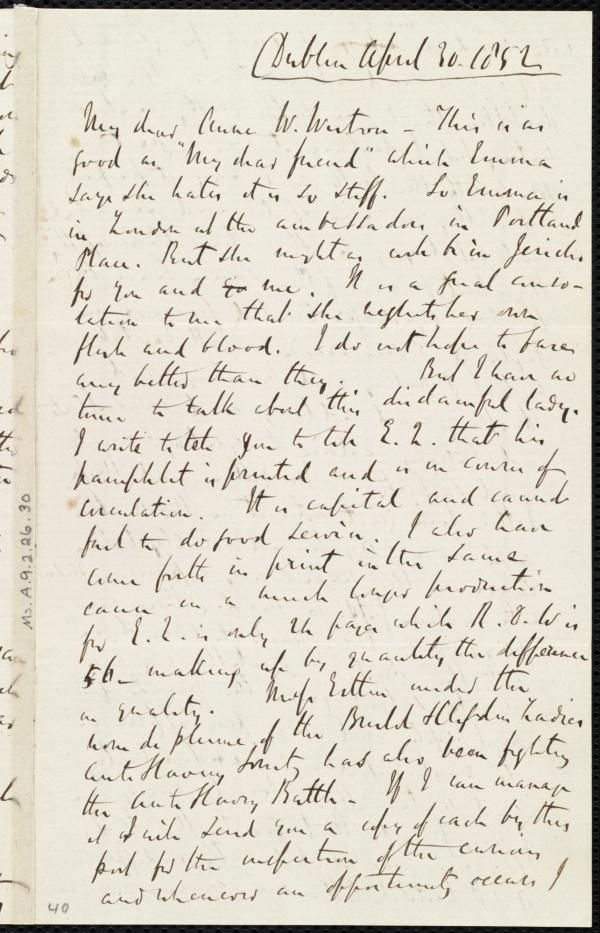 Dublin April 30. 1852
My dear Anne W. Weston – This is as
good as "My dear friend" which Emma
says she hates it is so stiff. So Emma is
in London at the ambassadors in Portland
Place. But she might as well be in Jericho
for you and me. It is a great conso-
lation to me that she neglects her own
flesh and blood. I do not hope to fare
any better than they. But I have no
time to talk about this disdainful lady.
I write to tell you to tell E. Q. that his
pamphlet is printed and is in course of
circulation. It is capital and cannot
fail to do good service. I also have
come forth in print in the same
cause in a much longer production
for E. Q. is only 24 pages while R. D. W is
56 – making up by quantity the difference
in quality. Miss Estlin under the
nom de plume of the Bristol & Clifton Ladies
Anti Slavery Society has also been fighting
the Anti Slavery Battle – If I can manage
it I will send you a copy of each by this
post for the inspection of the curious
and whenever an opportunity occurs I
Ms. A. 9. 2. 26. 30
40